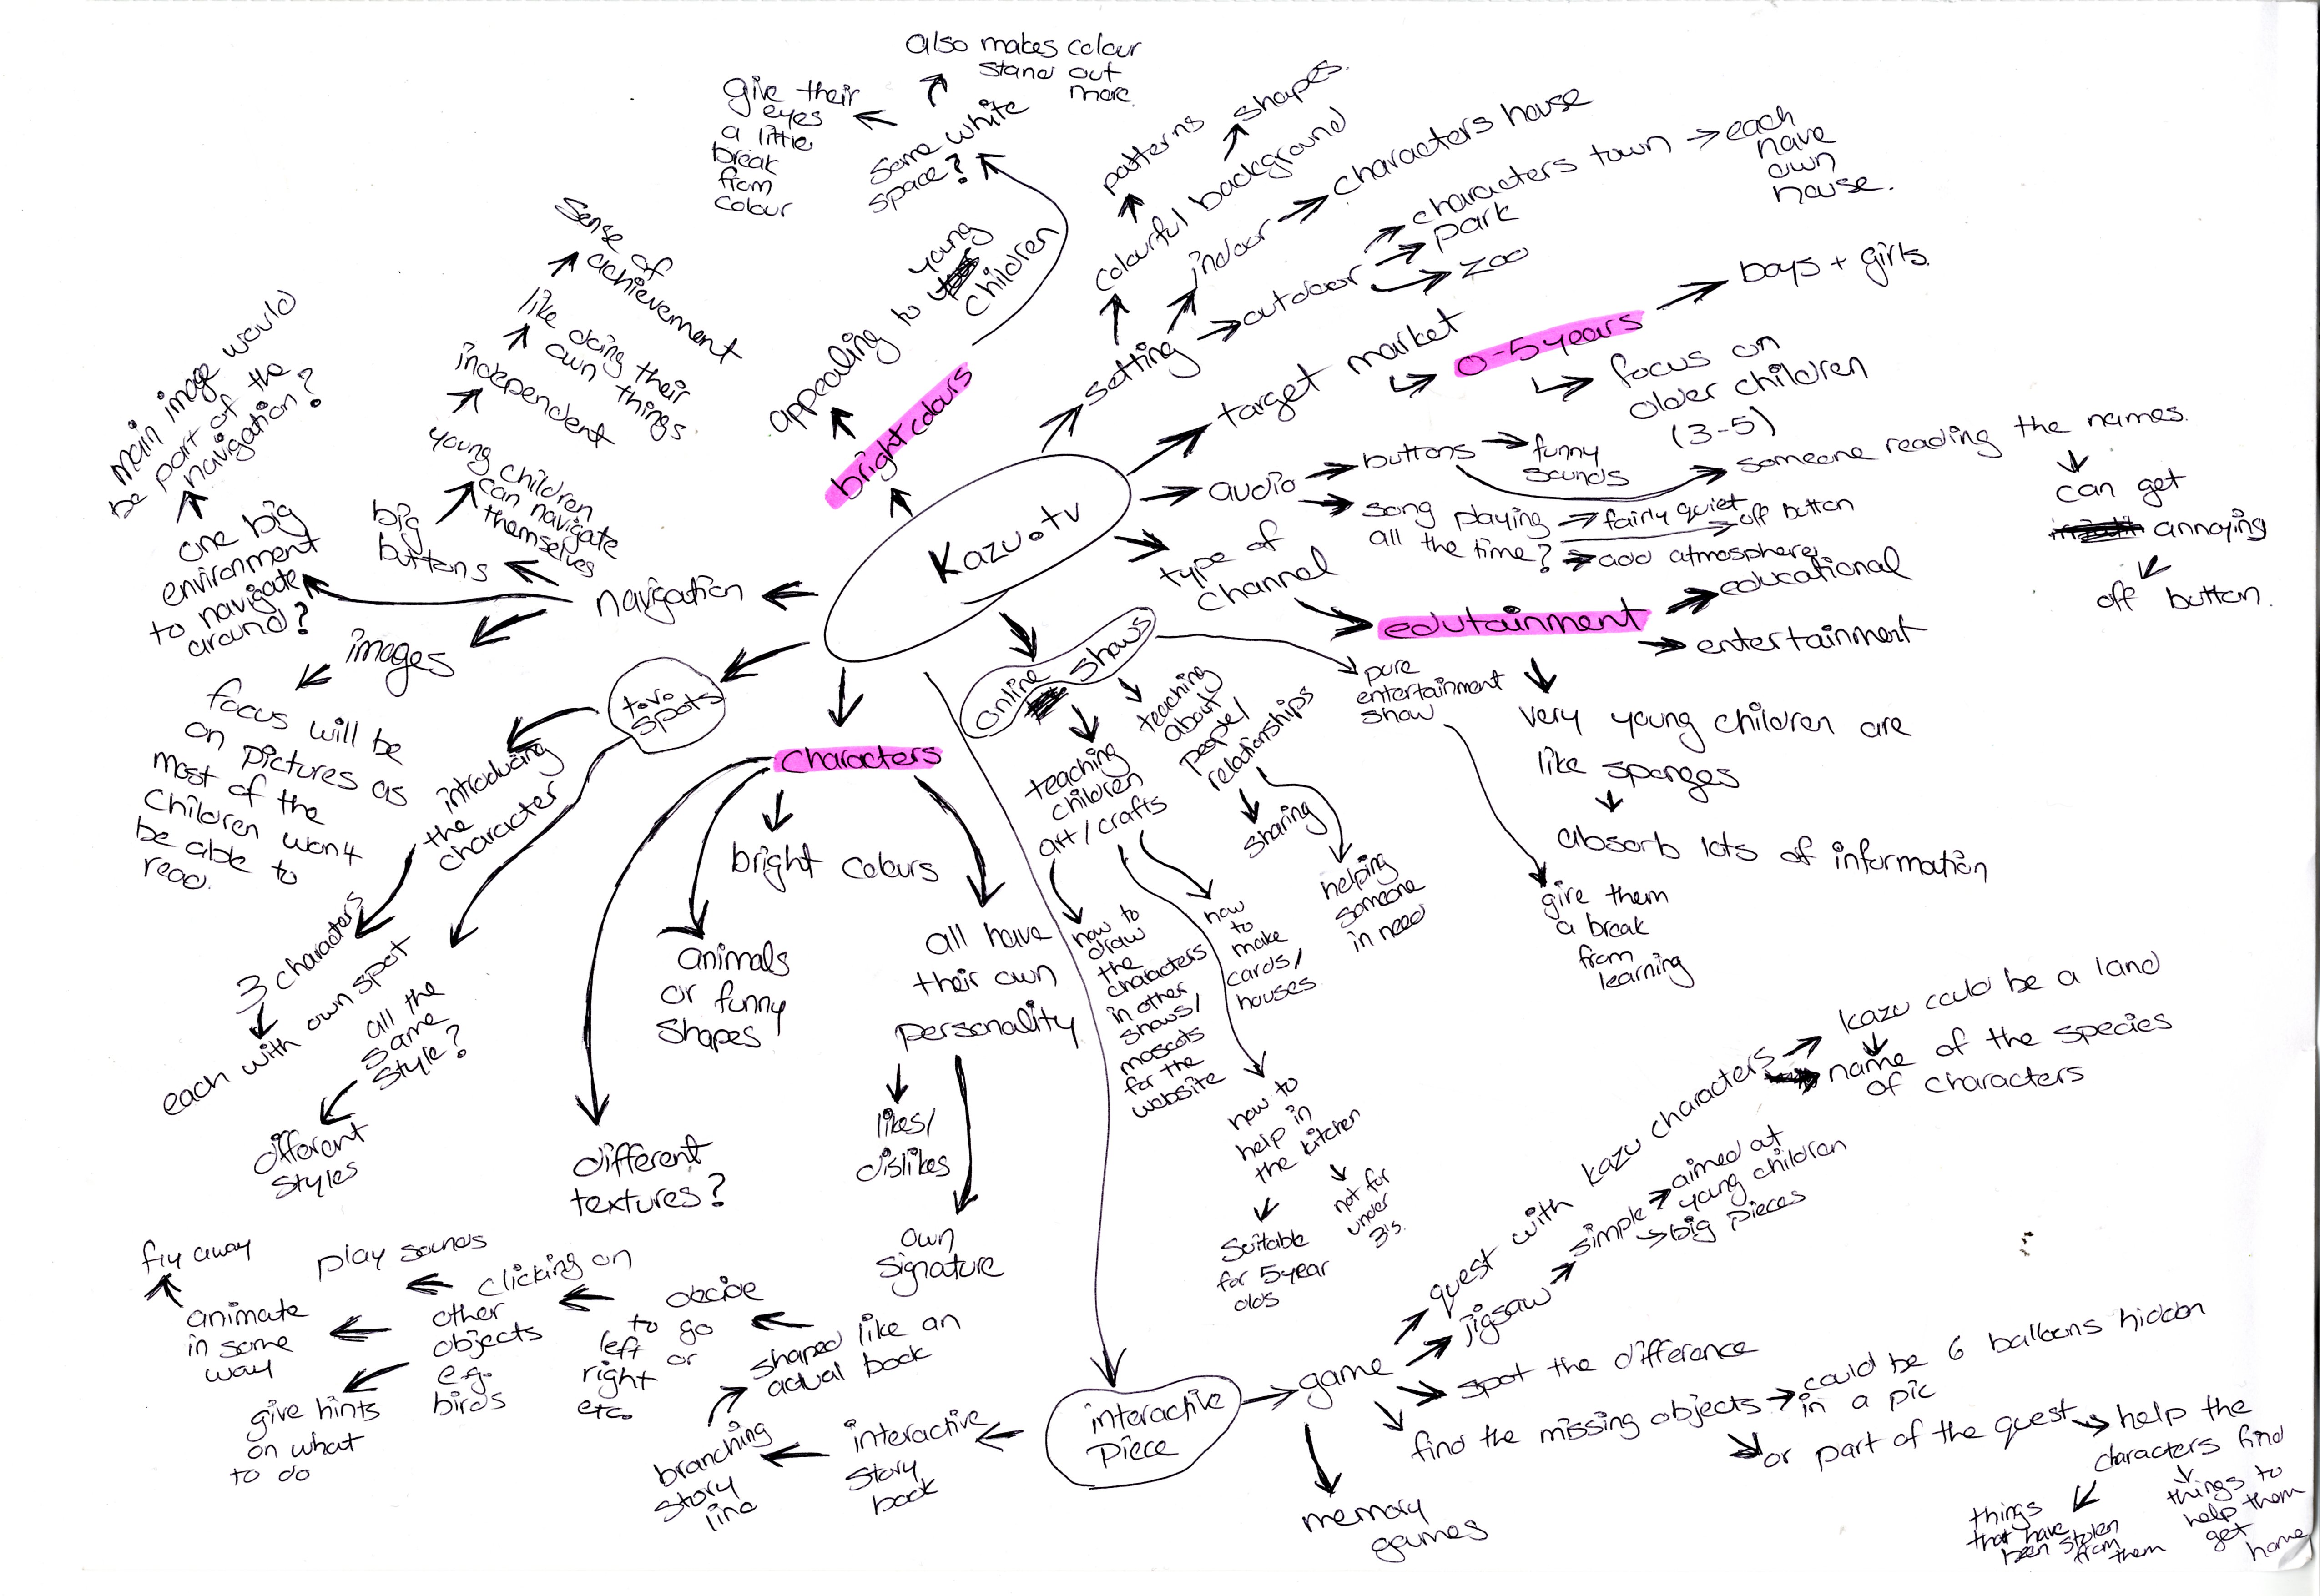 Kazu.tv
bright colours
appealing to young
children
some white
space?
give their
eyes
a little
break
from
colour
also makes colour
stand out
more.
setting
colourful background
patterns
shapes.
indoor
characters house
outdoor
characters town
each
have
own
house.
park
zoo
target market
0-5 years
boys + girls.
focus on
older children
(3-5)
audio
buttons
funny
sounds
someone reading the names.
can get
annoying
off button.
song playing
all the time?
fairly quiet
off button
add atmosphere
type of
channel
edutainment
educational
entertainment
very young children are
like sponges
absorb lots of information
online shows
pure
entertainment
show
give them
a break
from
learning
teaching
about
people/
relationships
sharing
helping
someone
in need
teaching
children
art/crafts
how to
draw
the
characters
in other
shows/
mascots
for the
website
how
to
make
cards/
houses
how to
help in
the kitchen
suitable
for 5 year
olds
not for
under
3's.
interactive
piece
game
quest with kazu characters
kazu could be a land
name of the species
of characters
jigsaw
simple
aimed at
young children
big pieces
spot the difference
find the missing objects
could be 6 balloons hidden
in a pic
or part of the quest
help the
characters find
things
that have
been stolen
from
them
things to
help them
get
home
memory
games
interactive
story
book
branching
story
line
shaped like an
actual book
decide
to go
left or
right
etc.
clicking on
other
objects
e.g.
birds
play sounds
animate
in some
way
fly away
give hints
on what
to do
characters
bright colours
animals
or funny
shapes
different
textures?
all have
their own
personality
likes/
dislikes
own
signature
t.v.
spots
introducing
the
character
3 characters
each with own spot
all the
same
style?
different
styles
navigation
big
buttons
young children
can navigate
themselves
independent
like doing their
own things
sense of
achievement
one big
environment
to navigate
around?
main image would
be part of the
navigation?
images
focus will be
on pictures as
most of the
children won4
be able to
read.